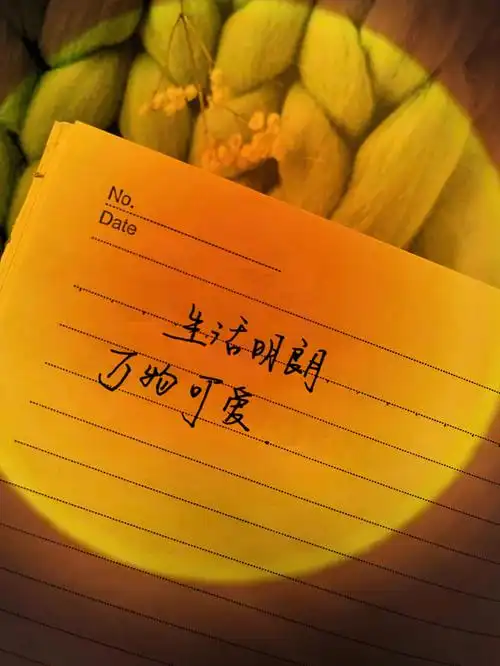 No.
Date
生活明朗
万物可爱.